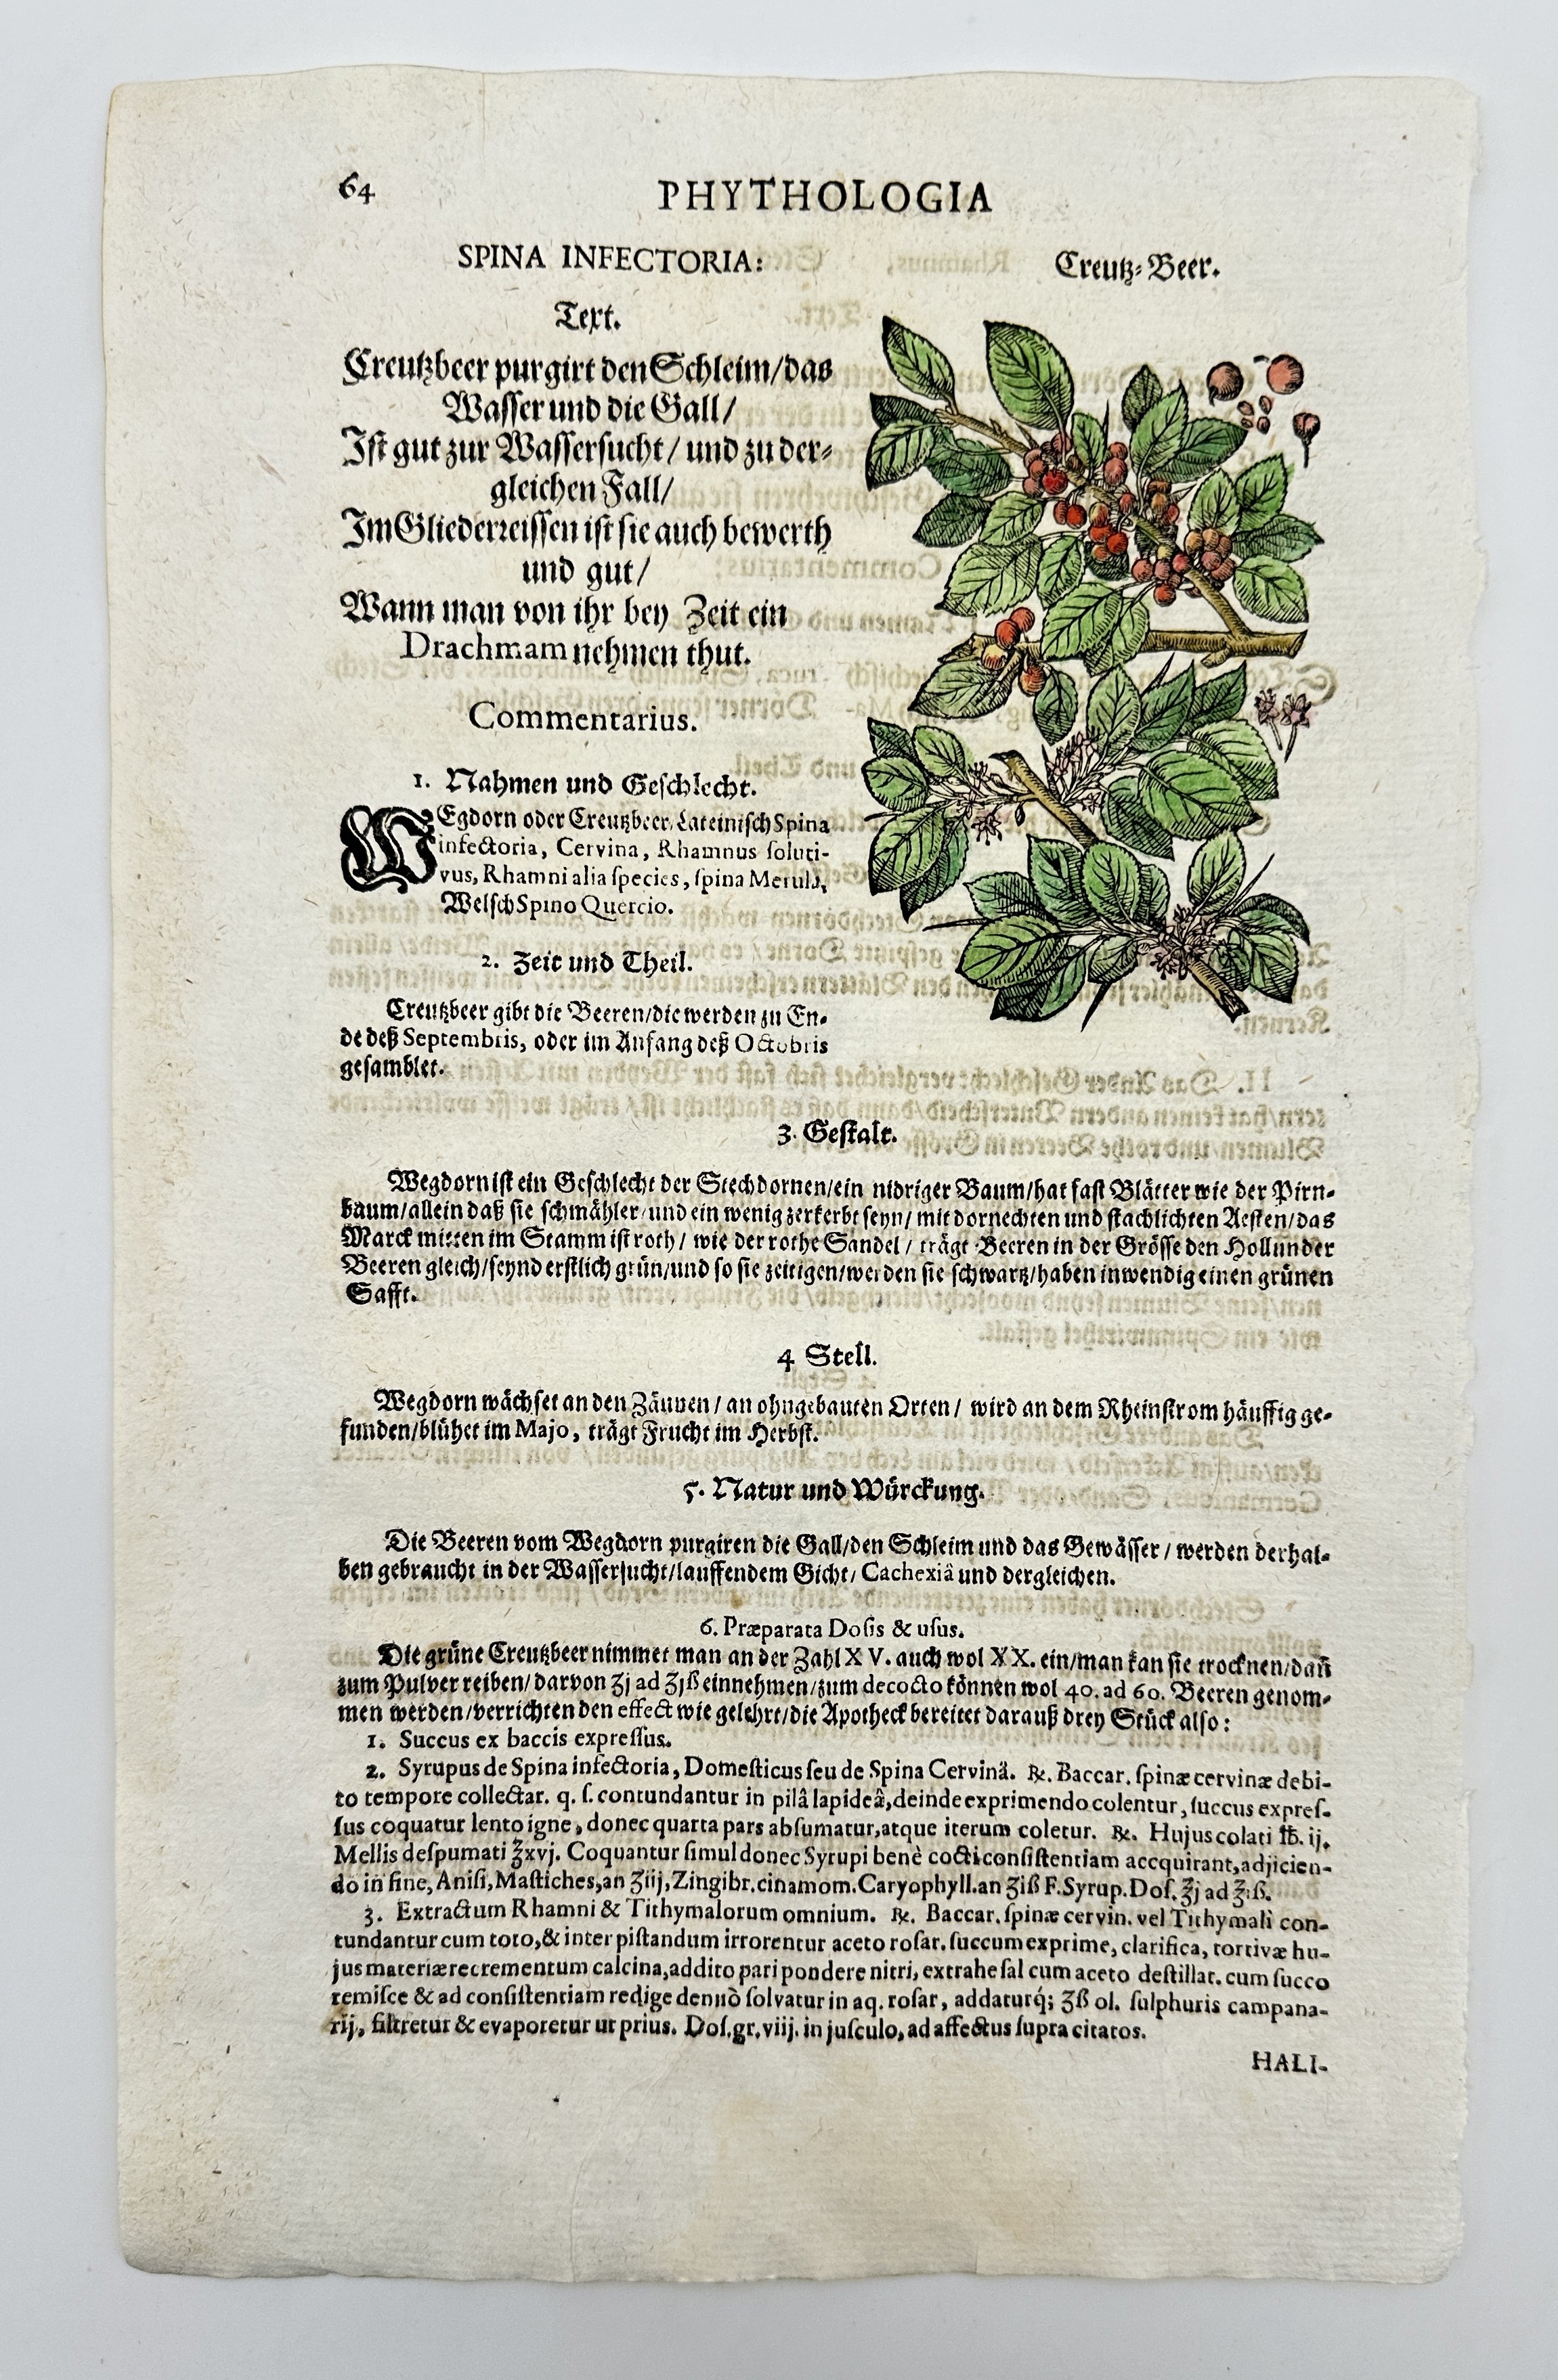 64
PHYTHOLOGIA
SPINA INFECTORIA:
Creutz-Beer.
Text.
Creutzbeer purgirt den Schleim/das
Wasser und die Gall/
Ist gut zur Wassersucht/ und zu der-
gleichen Fall/
Im Gliederreissen ist sie auch bewerth
und gut/
Wann man von ihr bey Zeit ein
Drachmam nehmen thut.
Commentarius.
1. Nahmen und Geschlecht.
WEgdorn oder Creutzbeer, Lateinisch Spina
infectoria, Cervina, Rhamnus soluti-
vus, Rhamni alia species, spina Merula,
Welsch Spino Quercio.
2. Zeit und Theil.
Creutzbeer gibt die Beeren/die werden zu En-
de deß Septembris, oder im Anfang deß Octobris
gesamblet.
3. Gestalt.
Wegdorn ist ein Geschlecht der Stechdornen/ein nidriger Baum/hat fast Blätter wie der Pirn-
baum/allein daß sie schmähler/und ein wenig zerkerbt seyn/ mit dornechten und stachlichten Aesten/das
Marck mitten im Stamm ist roth/ wie der rothe Sandel/ trägt Beeren in der Grösse den Hollunder
Beeren gleich/seynd erstlich grün/und so sie zeitigen/werden sie schwartz/haben inwendig einen grünen
Safft.
4 Stell.
Wegdorn wächset an den Zäunen/ an ohngebauten Orten/ wird an dem Rheinstrom häuffig ge-
funden/blühet im Majo, trägt Frucht im Herbst.
5. Natur und Würckung.
Die Beeren vom Wegdorn purgiren die Gall/den Schleim und das Gewässer/ werden derhal-
ben gebraucht in der Wassersucht/lauffendem Gicht/ Cachexiâ und dergleichen.
6. Præparata Dosis & usus.
Die grüne Creutzbeer nimmet man an der Zahl XV. auch wol XX. ein/man kan sie trocknen/dañ
zum Pulver reiben/darvon ʒj ad ʒjß einnehmen/zum decocto können wol 40. ad 60. Beeren genom-
men werden/verrichten den effect wie gelehrt/die Apotheck bereitet darauß drey Stück also:
1. Succus ex baccis expressus.
2. Syrupus de Spina infectoria, Domesticus seu de Spina Cervinâ. ℞. Baccar. spinæ cervinæ debi-
to tempore collectar. q. s. contundantur in pilâ lapideâ, deinde exprimendo colentur, succus expres-
sus coquatur lento igne, donec quarta pars absumatur, atque iterum coletur. ℞. Hujus colati ℔. ij.
Mellis despumati ℥xvj. Coquantur simul donec Syrupi benè cocti consistentiam accquirant, adjicien-
do in fine, Anisi, Mastiches, an ʒiij, Zingibr. cinamom. Caryophyll. an ʒiß F. Syrup. Dos. ℥j ad ℥iß.
3. Extractum Rhamni & Tithymalorum omnium. ℞. Baccar. spinæ cervin. vel Tithymali con-
tundantur cum toto, & inter pistandum irrorentur aceto rosar. succum exprime, clarifica, tortivæ hu-
jus materiæ recrementum calcina, addito pari pondere nitri, extrahe sal cum aceto destillat. cum succo
remisce & ad consistentiam redige denuò solvatur in aq. rosar, addaturq́; ʒß ol. sulphuris campana-
rij, filtretur & evaporetur ut prius. Dos. gr. viij. in jusculo, ad affectus supra citatos.
HALI-